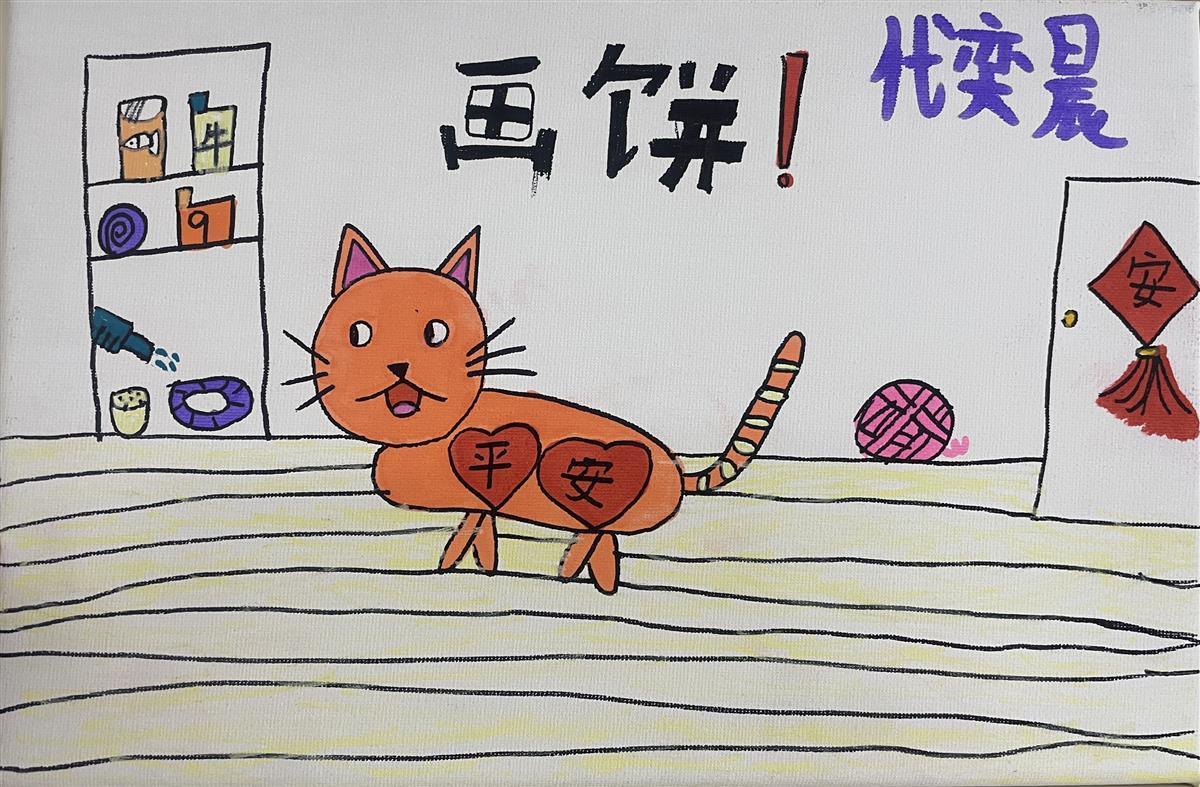 画饼！
代奕晨
牛
9
平
安
安